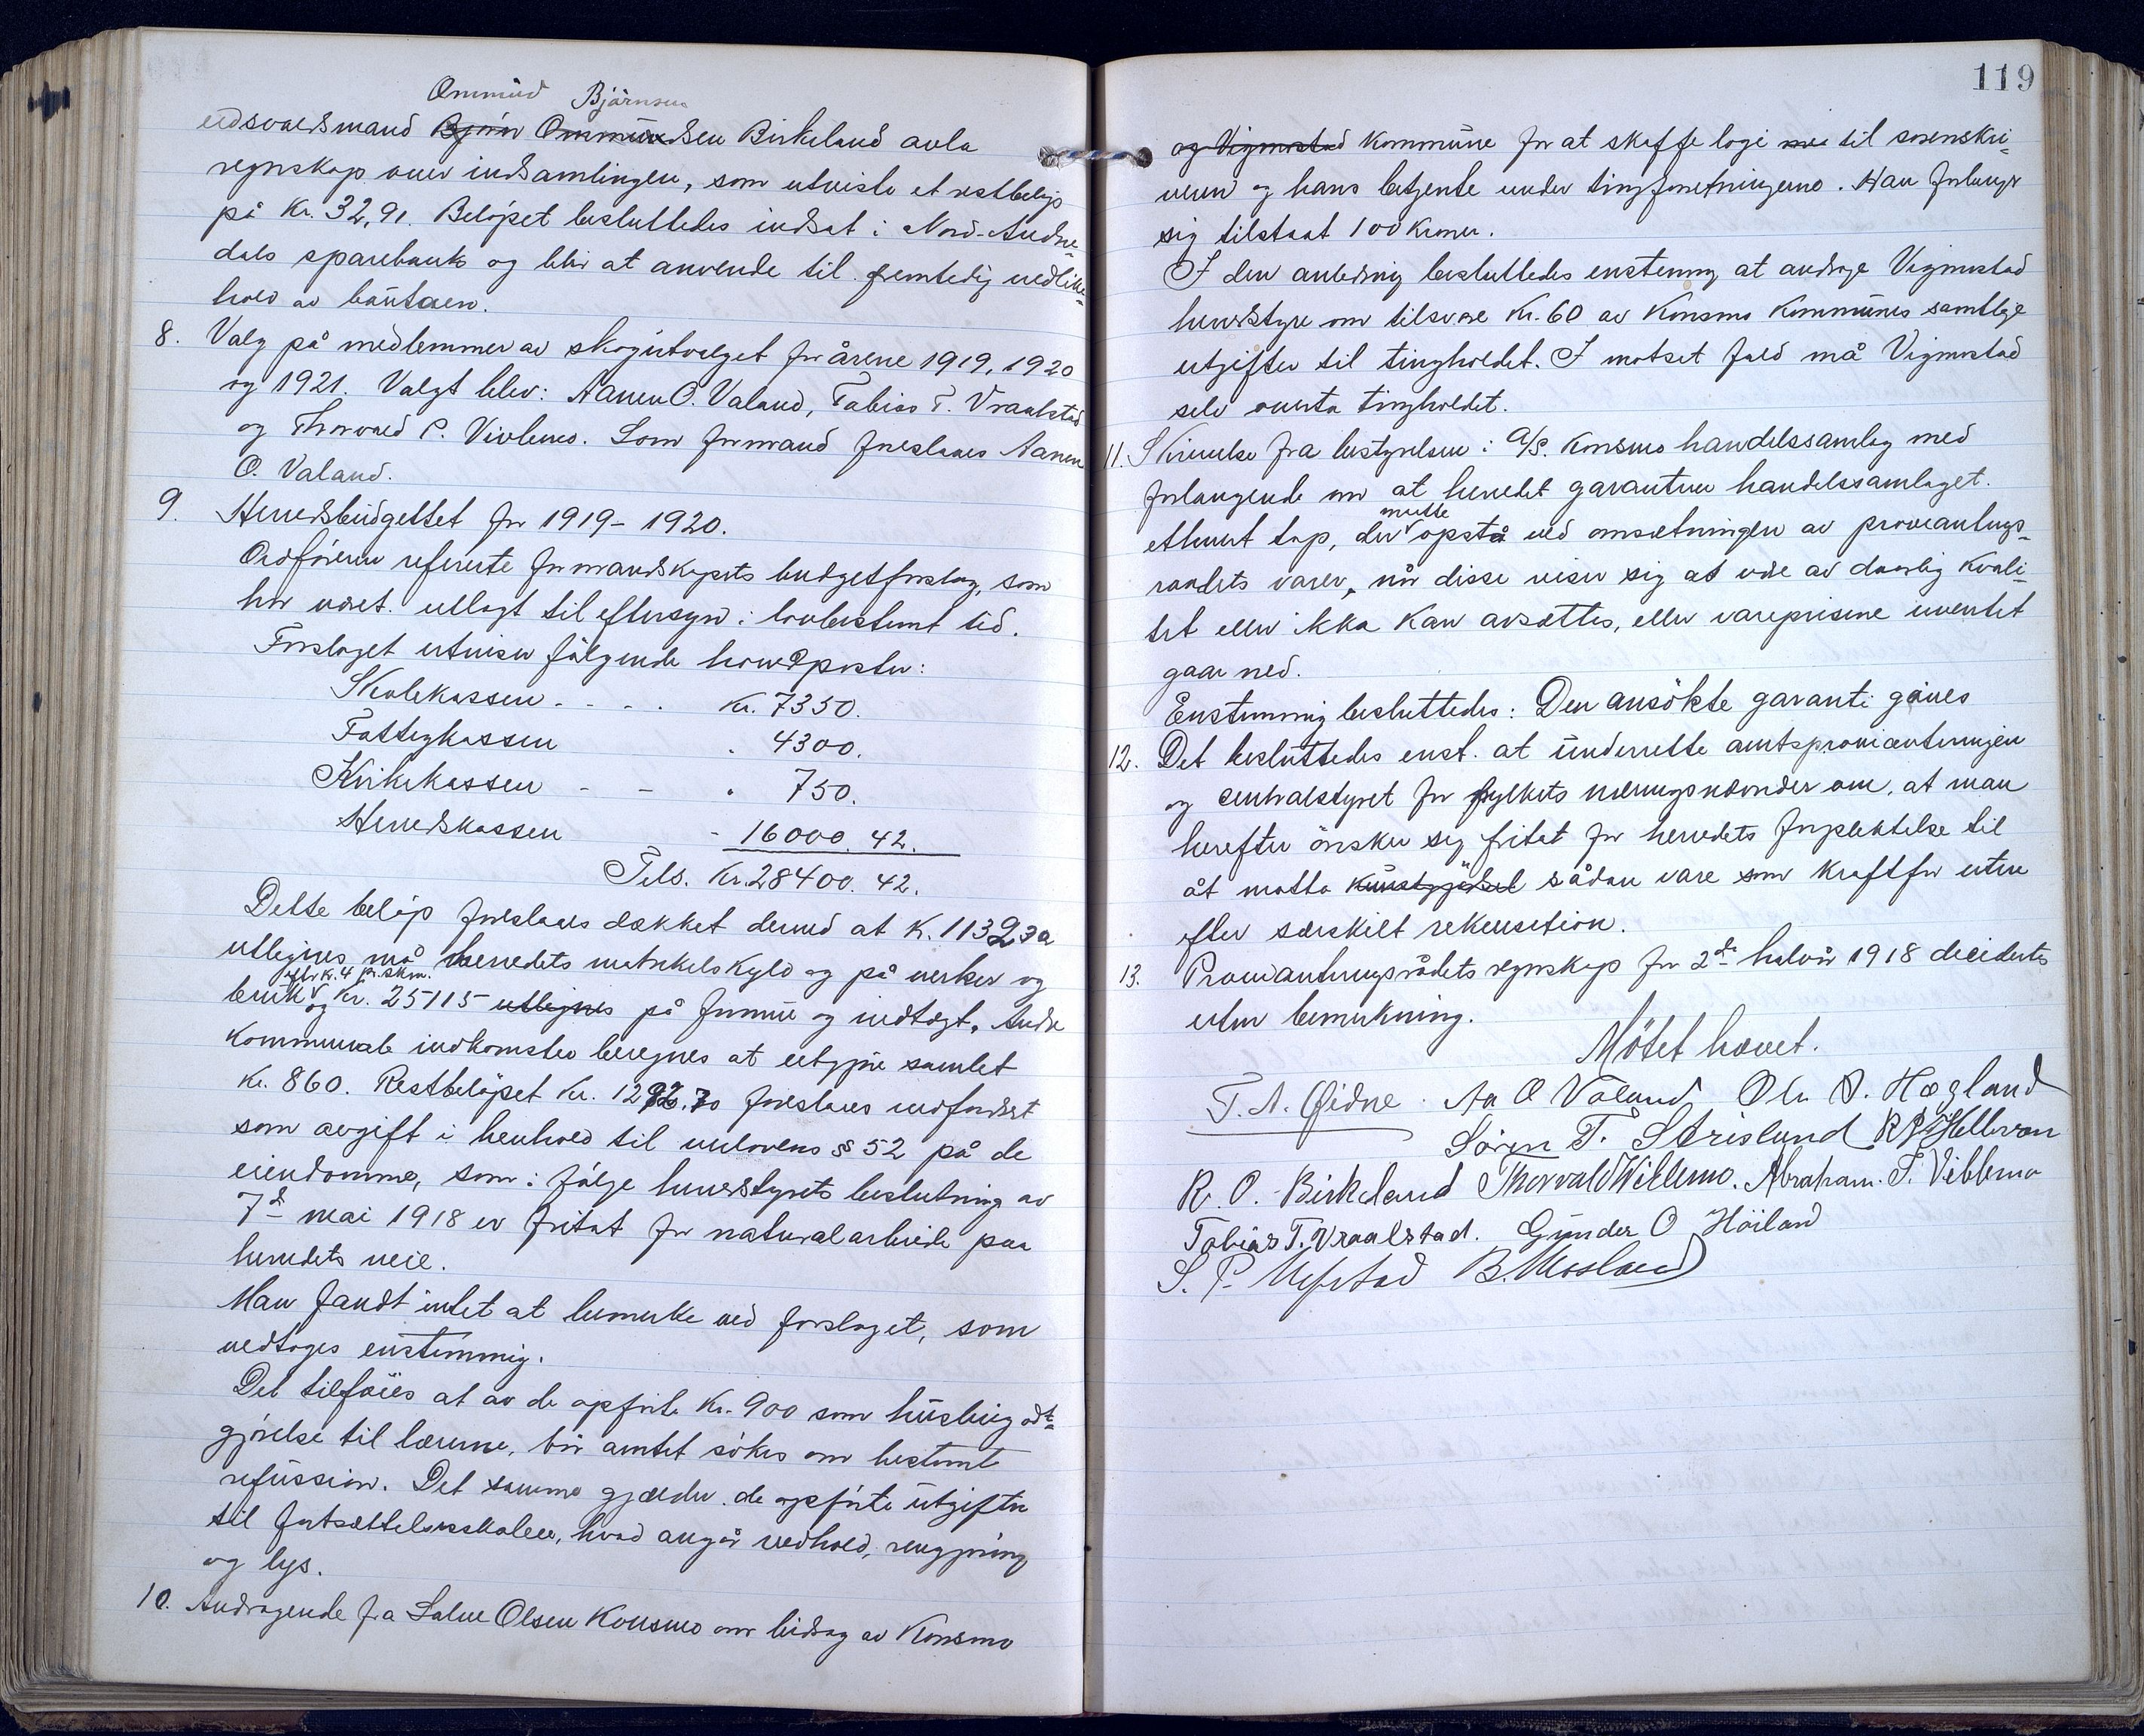 Ommund Björnsen
eidsvoldsmand Björn Ommundsen Birkeland avla
regnskap over indsamlingen, som utviste et restbeløp
på Kr. 32,91. Beløpet besluttedes indsat i Nord-Audne-
dals sparebank og blir at anvende til fremtidig vedlike-
hold av bautaen.
8. Valg på medlemmer av skogutvalget for årene 1919, 1920
og 1921. Valgt blev: Aanen O. Valand, Tobias T. Vraalstad
og Thorvald P. Vivlemo. Som formand foreslaaes Aanen
O. Valand.
9. Herredsbudgettet for 1919-1920.
Ordføreren refererte formandskapets budgetforslag, som
har været utlagt til eftersyn i lovbestemt tid.
Forslaget utviser følgende hovedposter:
Skolekassen - - - . Kr. 7350.
Fattigkassen . 4300.
Kirkekassen - - . 750.
Herredskassen - 16000.42.
Tils. Kr. 28400.42.
Dette beløp foreslaaes dækket derved at K. 1132,72
utlignes på herredets matrikelskyld og på verker og
efter K. 4 pr. skm.
bruk og Kr. 25115 utlignes på formue og indtægt. Andre
kommunale indkomster beregnes at utgjøre samlet
Kr. 860. Restbeløpet Kr. 1292.70 foreslaaes indfordret
som avgift i henhold til veilovens § 52 på de
eiendomme, som i følge herredstyrets beslutning av
7de mai 1918 er fritat for naturalarbeide paa
herredets veie.
Man fandt intet at bemerke ved forslaget, som
vedtoges enstemmig.
Det tilføies at av de opførte Kr. 900 som husleiegodt-
gjørelse til lærerne, bör amtet sökes om bestemt
refussion. Det samme gjælder de opførte utgifter
til fortsættelsesskolen, hvad angår vedhold, rengjøring
og lys.
10. Andragende fra Salve Olsen Konsmo om bidrag av Konsmo
119
og Vigmostad kommune for at skaffe logi til sorenskri-
veren og hans betjente under tingforretningerne. Han forlanger
sig tilstaat 100 kroner.
I den anledning besluttedes enstemmig at andrage Vigmostad
herredstyre om tilsvare Kr. 60 av Konsmo kommunes samtlige
utgifter til tingholdet. I motsat fald må Vigmostad
selv overta tingholdet.
11. Skrivelse fra bestyrelsen i A/S. Konsmo handelssamlag med
forlangende om at herredet garanterer handelssamlaget.
maatte
ethvert tap, der opstå ved omsætningen av provianterings-
raadets varer, når disse viser sig at være av daarlig kvali-
tet eller ikke kan avsættes, eller vareprisene uventet
gaar ned.
Enstemmig besluttedes: Den ansökte garanti gives
12. Det besluttedes enst. at underrette amtsprovianteringen
og centralstyret for fylkets næringsnævnder om, at man
herefter önsker sig fritat for herredets forpliktelse til
åt motta kunstgjödsel sådan vare som kraftfor uten
efter særskilt rekvisition.
13. Provianteringsrådets regnskap for 2det halvår 1918 decidertes
uten bemerkning.
Mötet hævet.
T. A. Øidne. Aa O Valand Ole S. Hægland
Sören T. Strisland R R Helleren
R. O. Birkeland Thorvald Willemo. Abraham. T. Viblemo
Tobias T. Vraalstad. Gunder O Höiland
S. P. Ubostad B. Mosland